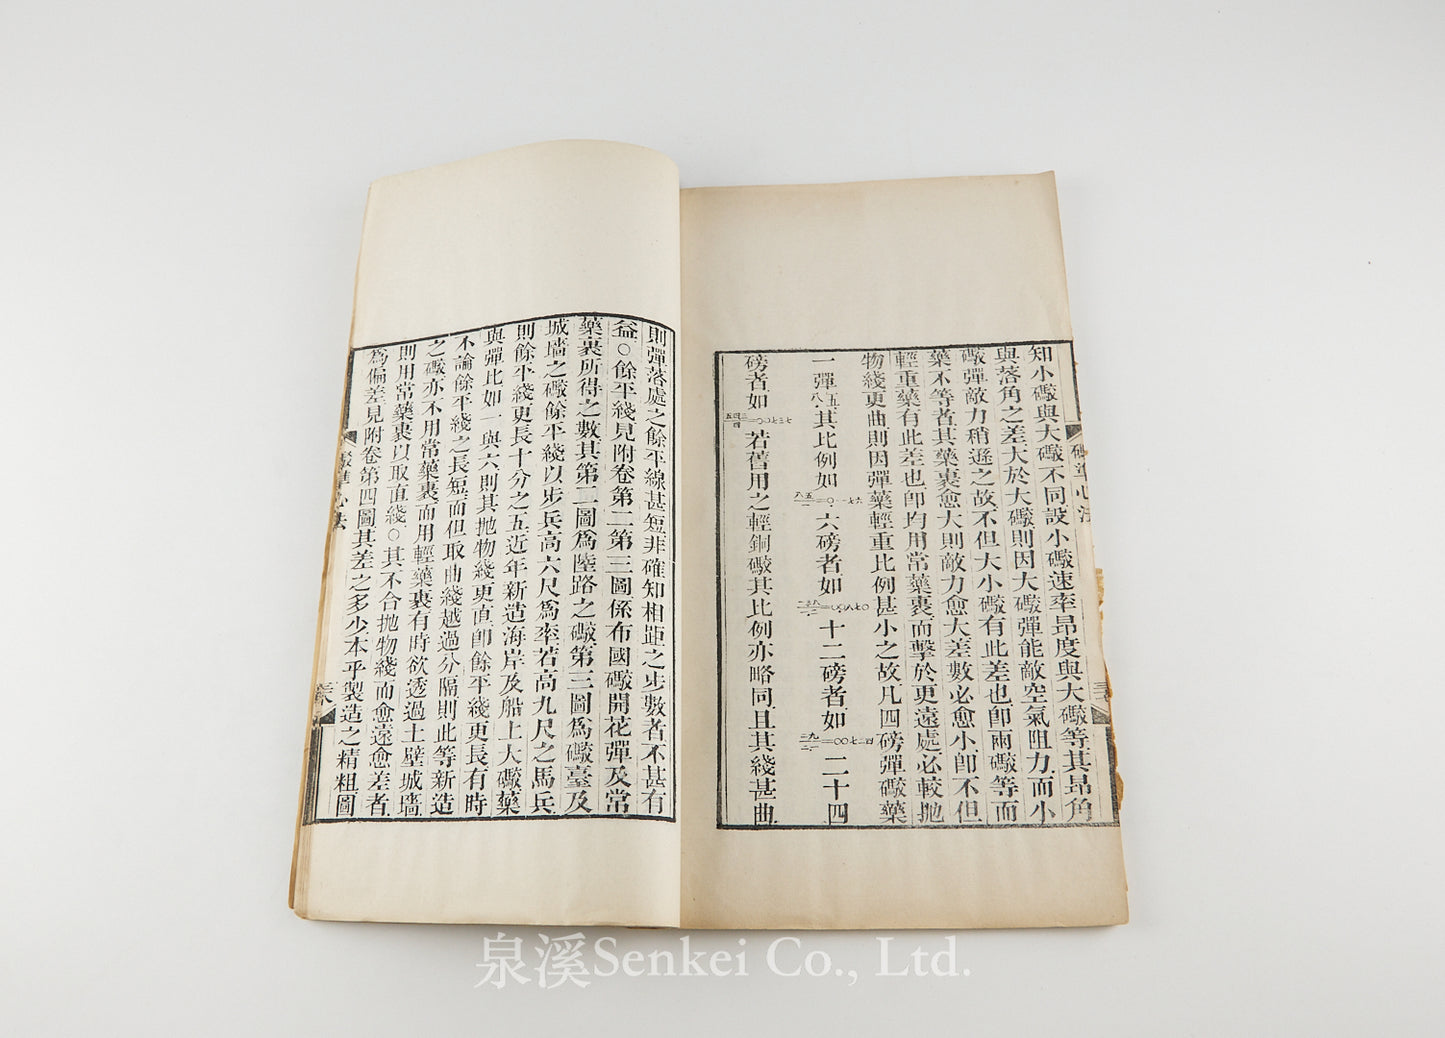 知小礮與大礮不同設小礮速率昻度與大礮等其昻角
與落角之差大於大礮則因大礮彈能敵空氣阻力而小
礮彈敵力稍遜之故不但大小礮有此差也卽兩礮等而
藥不等者其藥裹愈大則敵力愈大差數必愈小卽不但
輕重藥有此差也卽均用常藥裹而擊於更遠處必較拋
物綫更曲則因彈藥輕重比例甚小之故凡四磅彈礮藥
一彈五八其比例如 六磅者如 十二磅者如 二十四
磅者如 若舊用之輕銅礮其比例亦略同且其綫甚曲
則彈落處之餘平線甚短非確知相距之步數者不甚有
益○餘平綫見附卷第二第三圖係布國礮開花彈及常
藥裹所得之數其第二圖為陸路之礮第三圖為礮臺及
城墻之礮餘平綫以步兵高六尺為率若高九尺之馬兵
則餘平綫更長十分之五近年新造海岸及船上大礮藥
與彈比如一與六則其拋物綫更直卽餘平綫更長有時
不論餘平綫之長短而但取曲綫越過分隔則此等新造
之礮亦不用常藥裹而用輕藥裹有時欲透過土壁城墻
則用常藥裹以取直綫○其不合拋物綫而愈遠愈差者
為偏差見附卷第四圖其差之多少本乎製造之精粗圖
泉溪Senkei Co., Ltd.